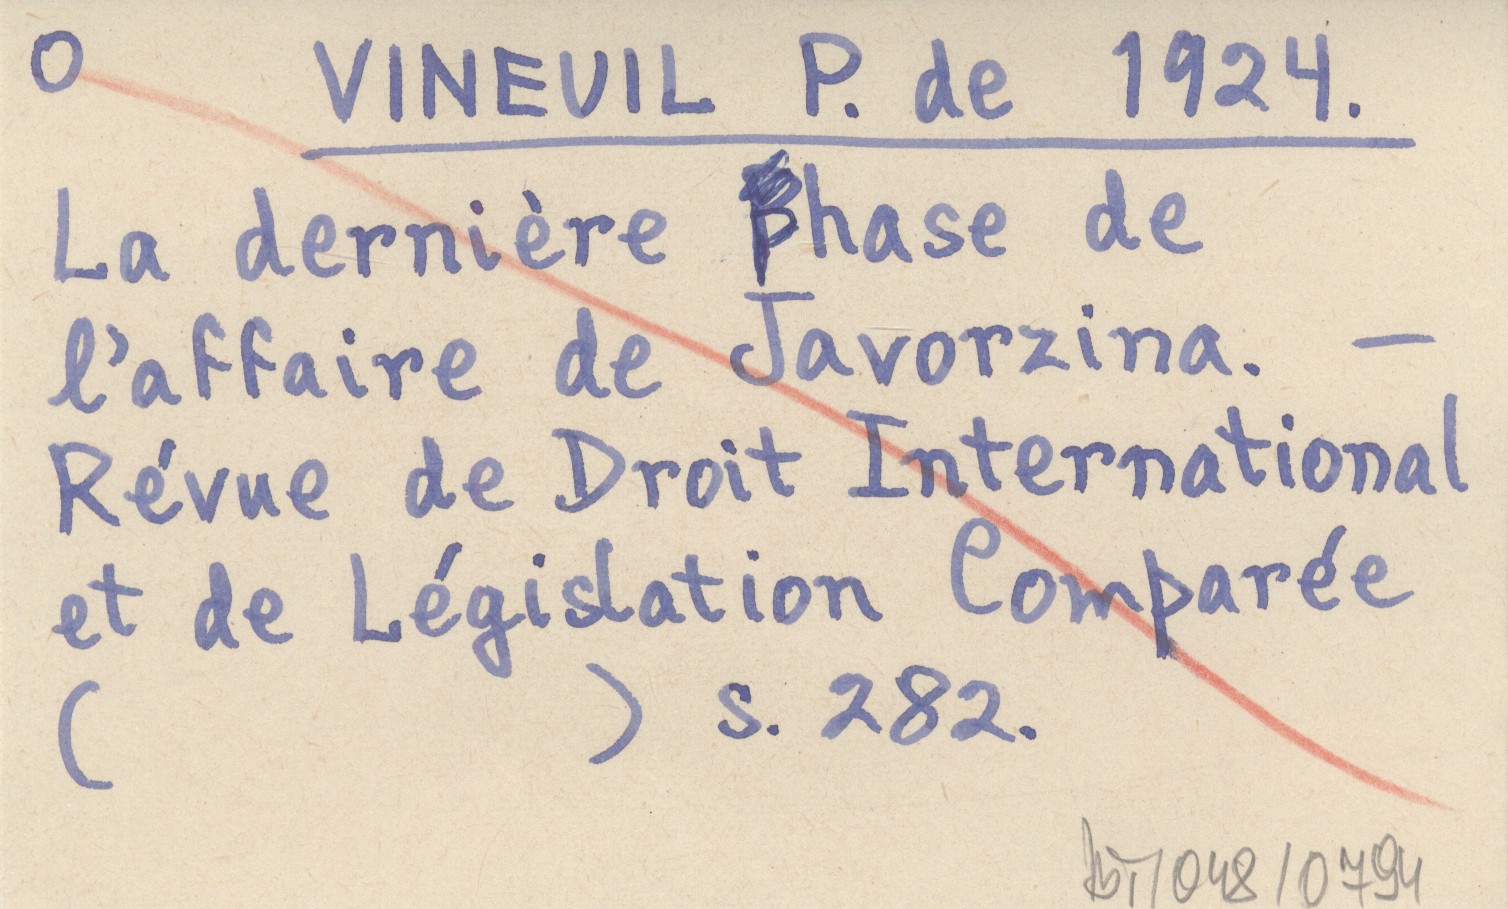 O VINEUIL P. de 1924.
La dernière phase de
l'affaire de Javorzina. —
Révue de Droit International
et de Législation Comparée
( ) s. 282.
/048/0794